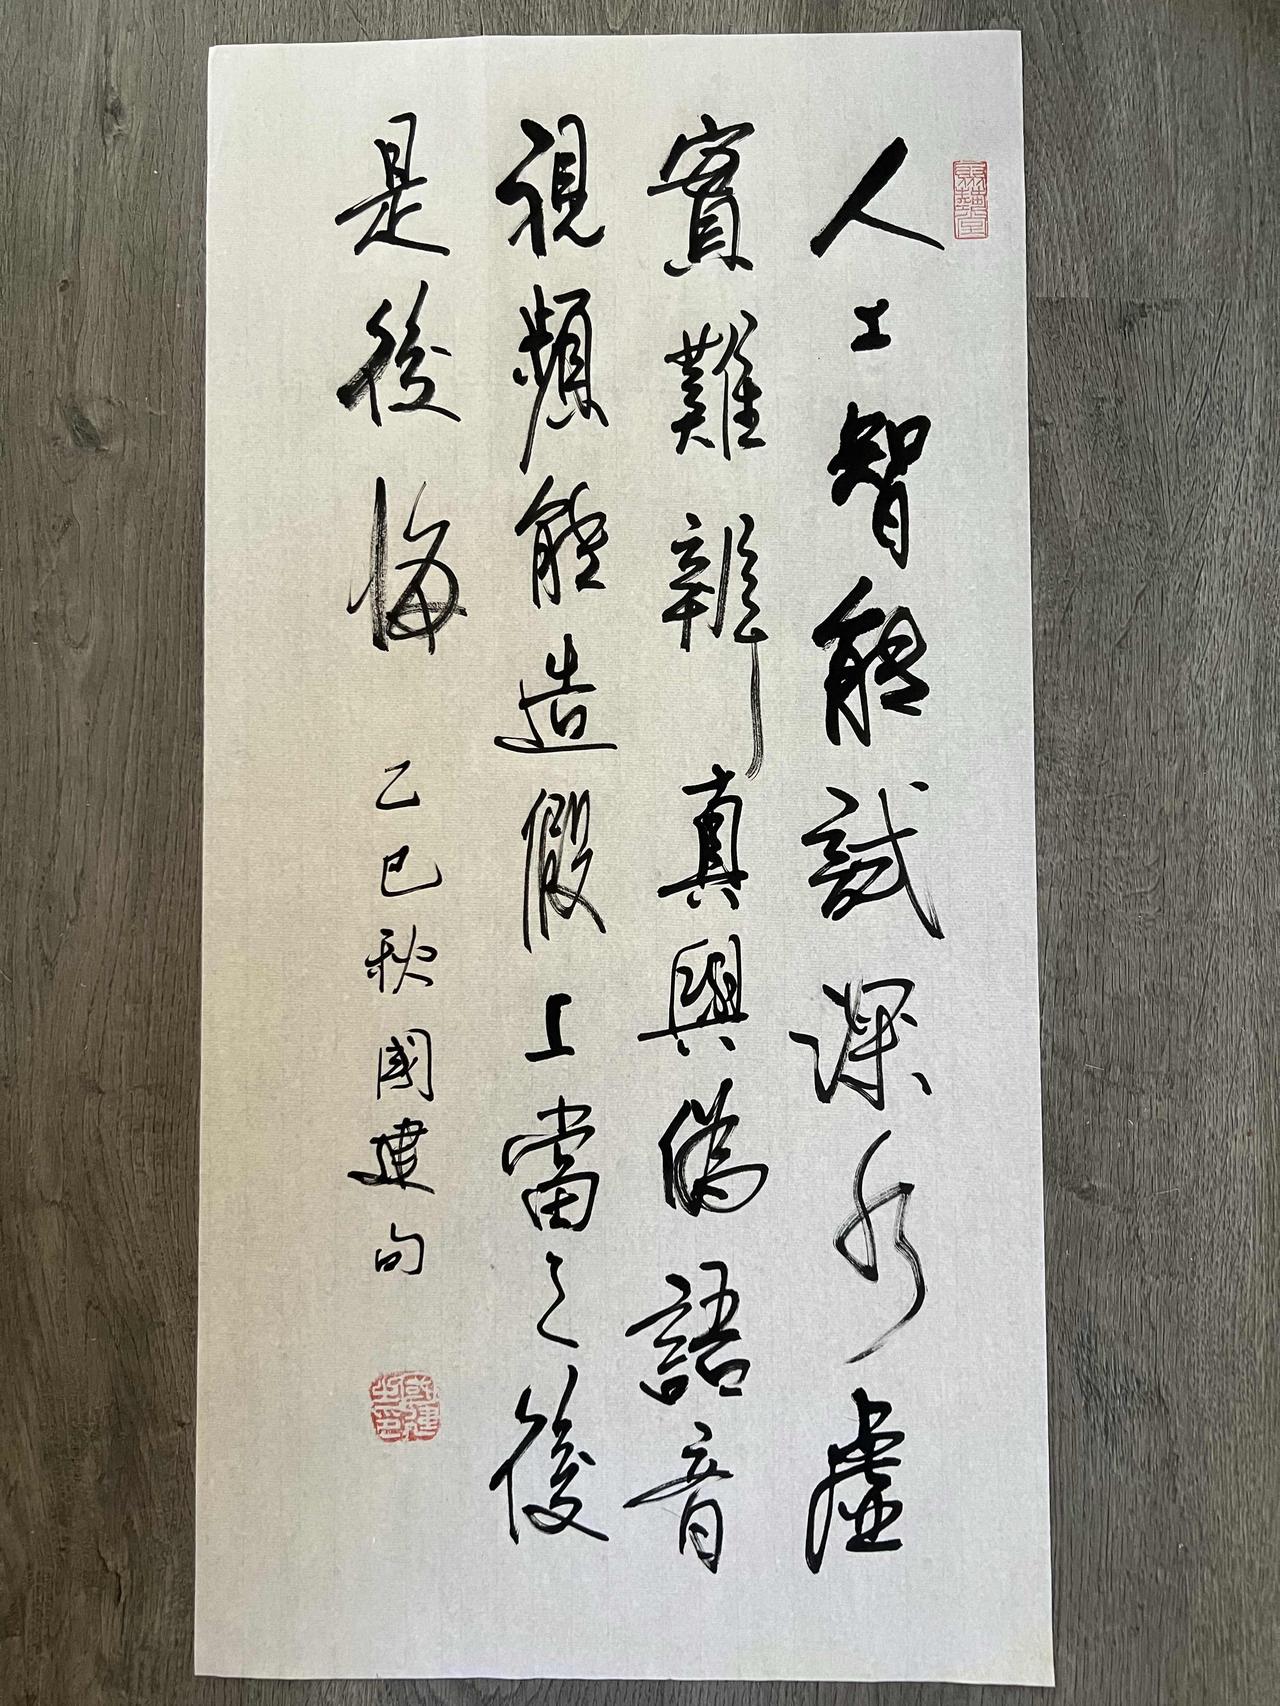 人工智能試深水虛
實難辨真與偽語音
視頻能造假上當之後
是後悔
乙巳秋國建句
國建之印